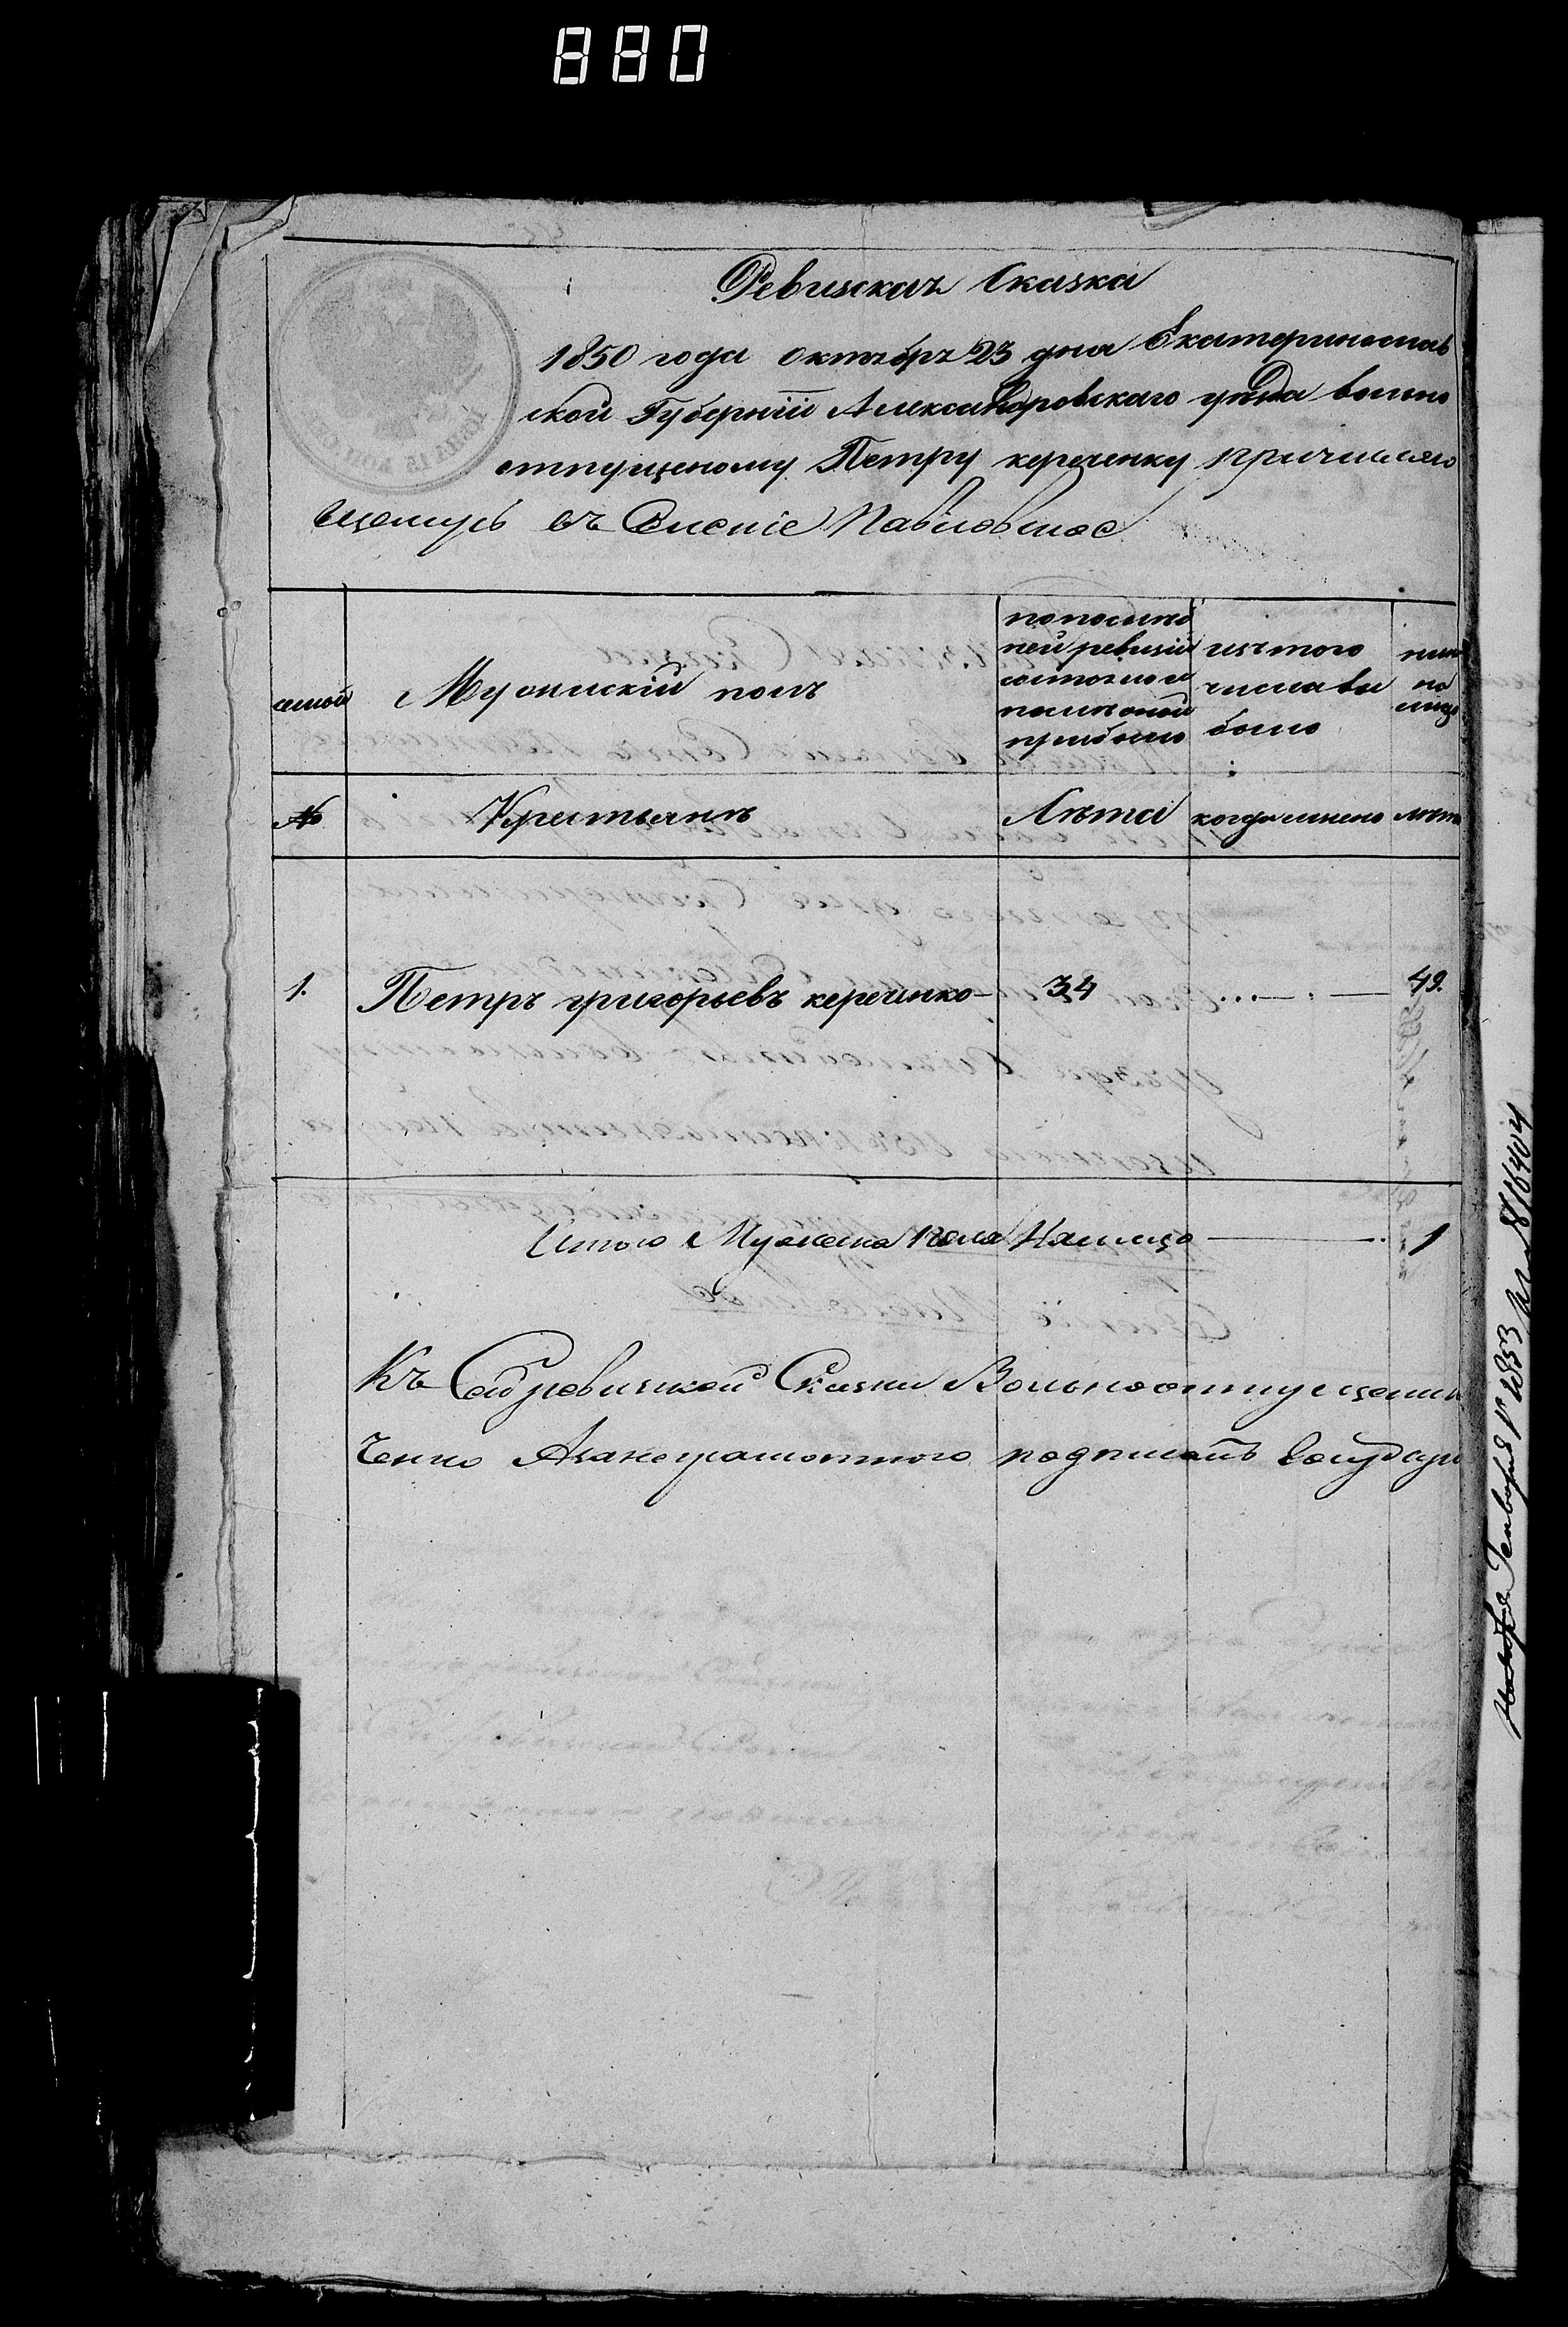 880
Ревизская Сказка
1850 года октября 23 дня Екатеринослав
ской Губернiи Александровскаго уезда вольно
отпущеному Петру кереченку причисляю
щемусь въ Селенiе Павловное
ЦѢНА 15 КОП
семей
Мужискiй полъ
по послѣд
ней ревизiй
состояло и
послѣ оной
прибыло
изъ того
числа вы
было
ныне
на
лицо
№
Крестьянъ
Лѣта
когда имено
лѣта
1. Петръ григорьевъ кереченко 34 49.
Итого Мужеска пола Налицо 1
Къ Сей ревизской Сказки Вольноотпущеный
ченко Азанеграмотного подписалъ Государ
Генваря 1853 № 816404